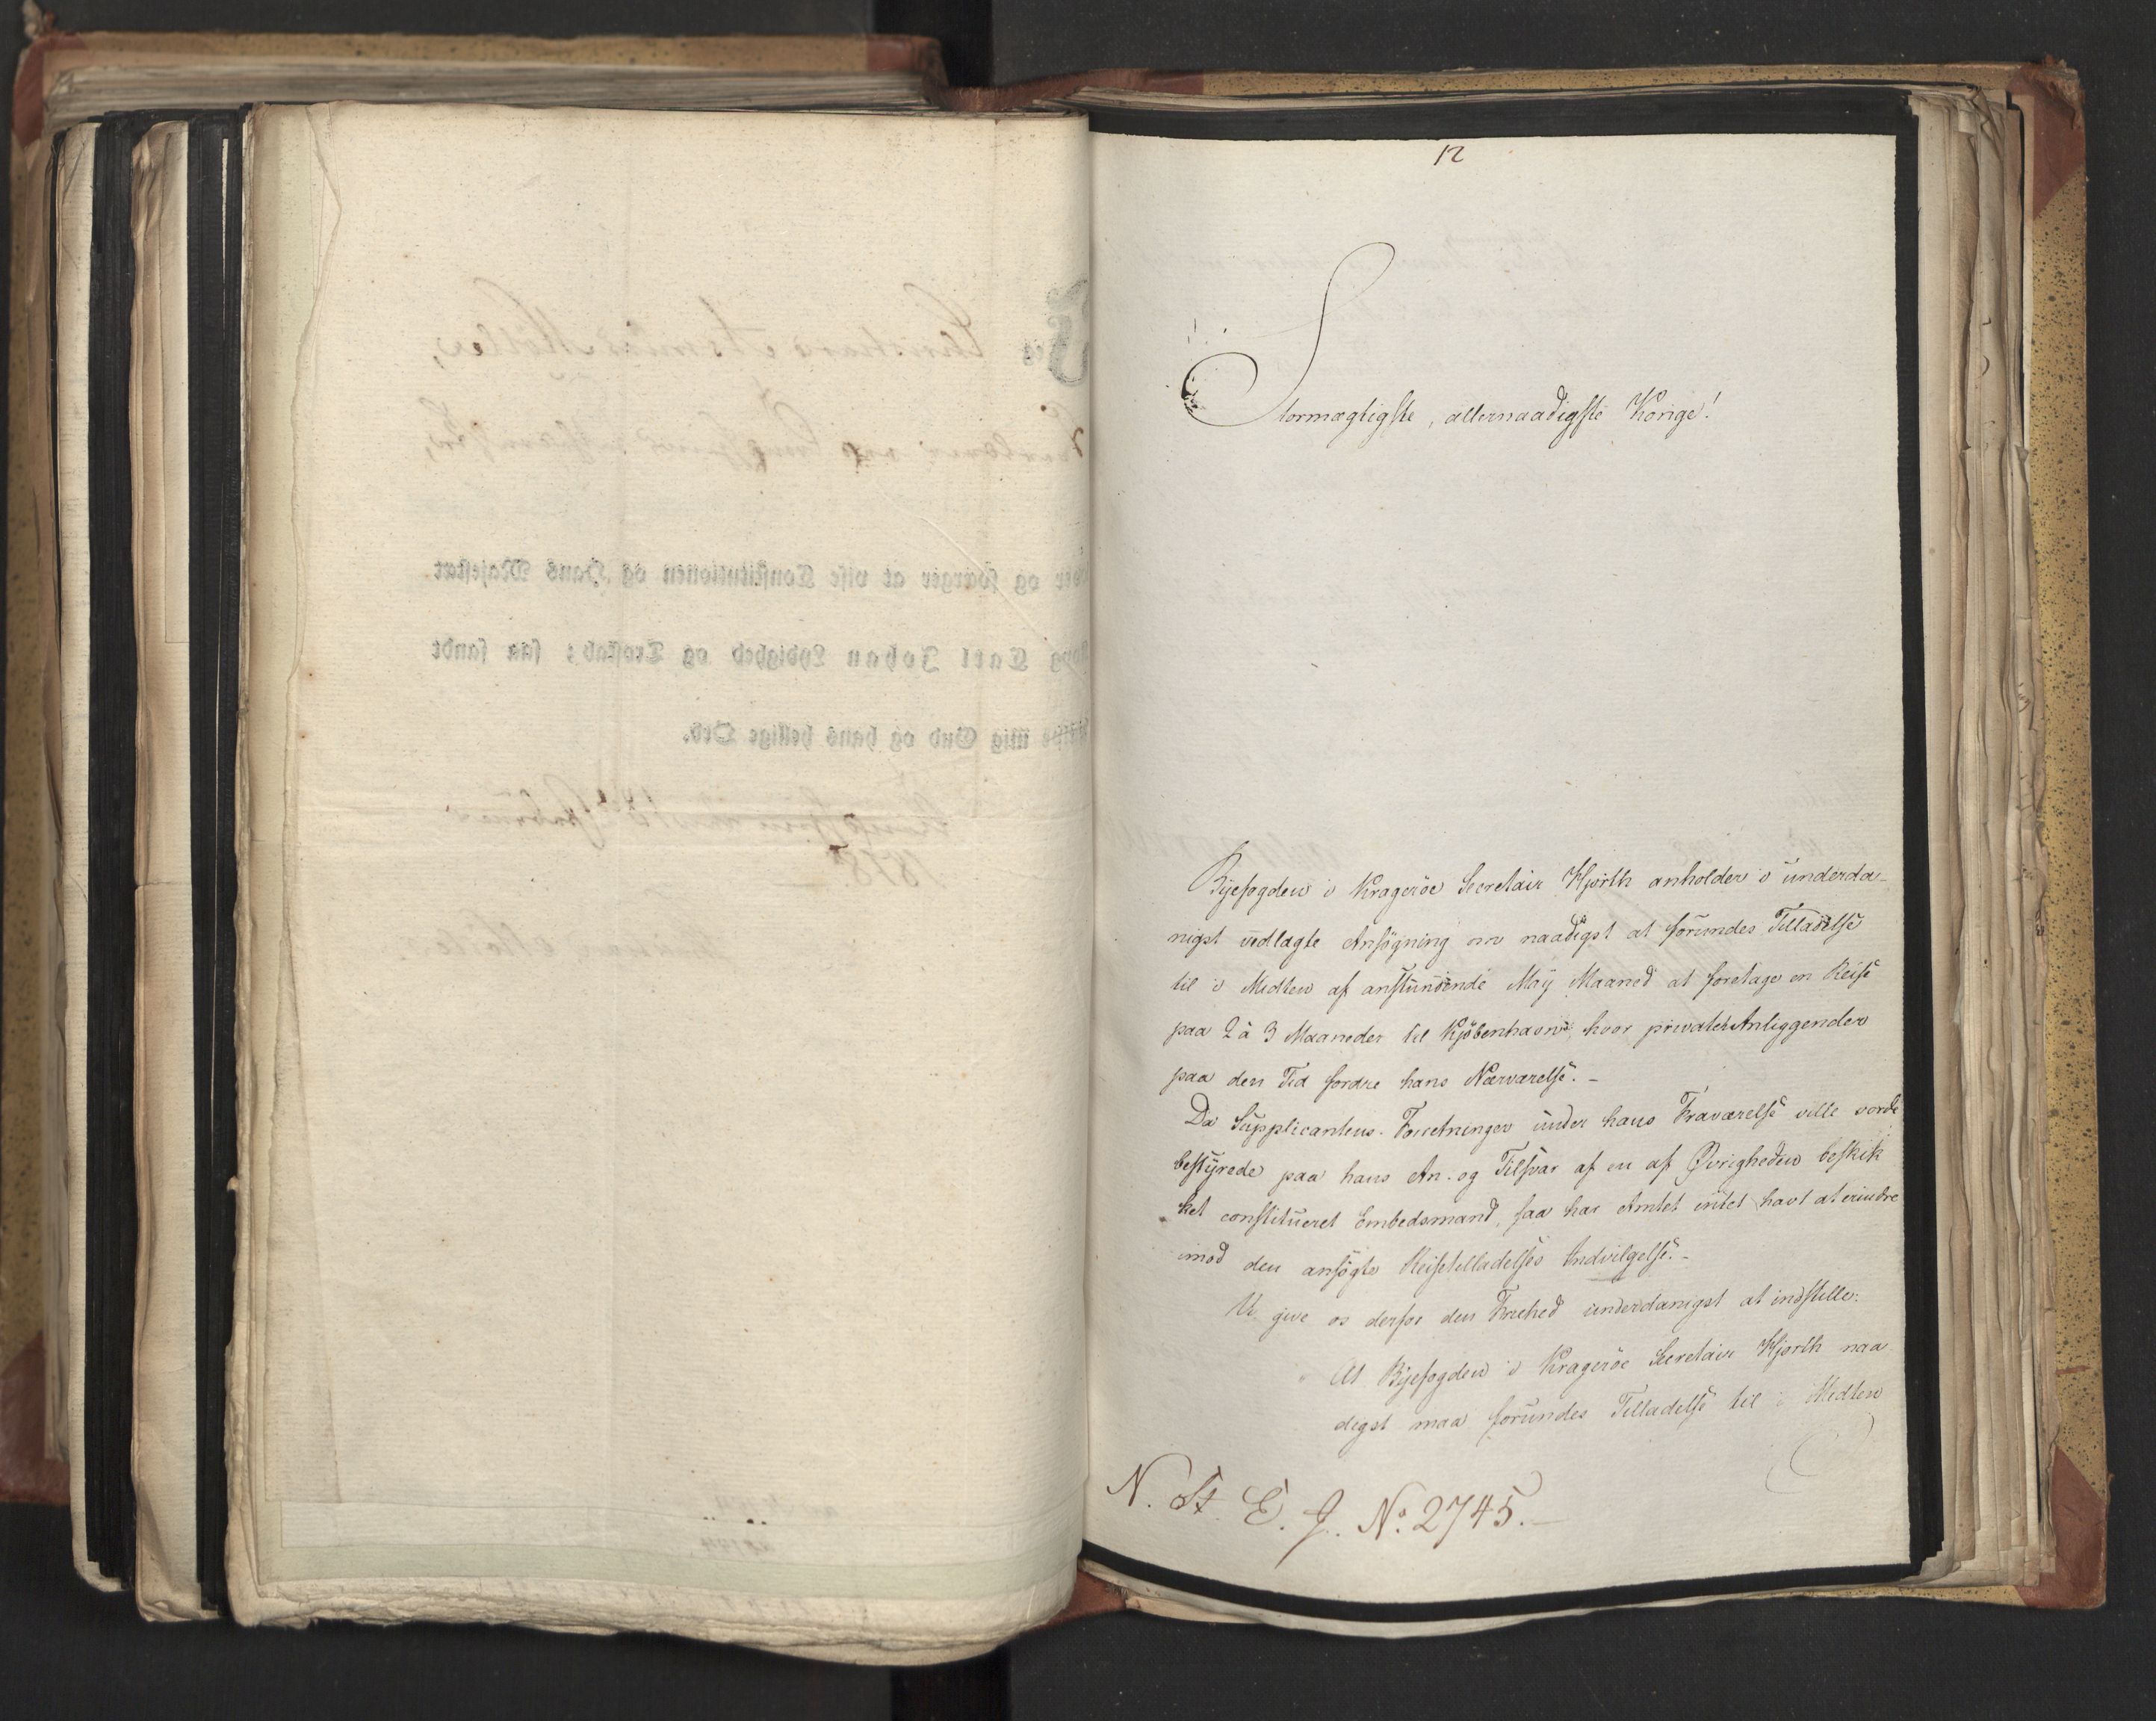 12
Stormægtigste, allernaadigste Konge!
Byefogden i Kragerøe Secretair Hjorth anholder i underda-
nigst vedlagte Ansøgning om naadigst at forundes Tilladelse
til i Midten af anstundende May Maaned at foretage en Reise
paa 2 à 3 Maaneder til Kjøbenhavn, hvor private Anliggender
paa den Tid fordre hans Nærværelse. -
Da Supplicantens Forretninger under hans Fraværelse ville vorde
bestyrede paa hans An- og Tilsvar af en af Øvrigheden beskik
ket constitueret Embedsmand, saa har Amtet intet havt at erindre
imod den ansøgte Reisetilladelses Indvilgelse. -
Vi give os derfor den Frihed underdanigst at indstille:
At Byefogden i Kragerøe Secretair Hjorth naa
digst maa forundes Tilladelse til i Midten
N. St. E. J. No. 2745. -